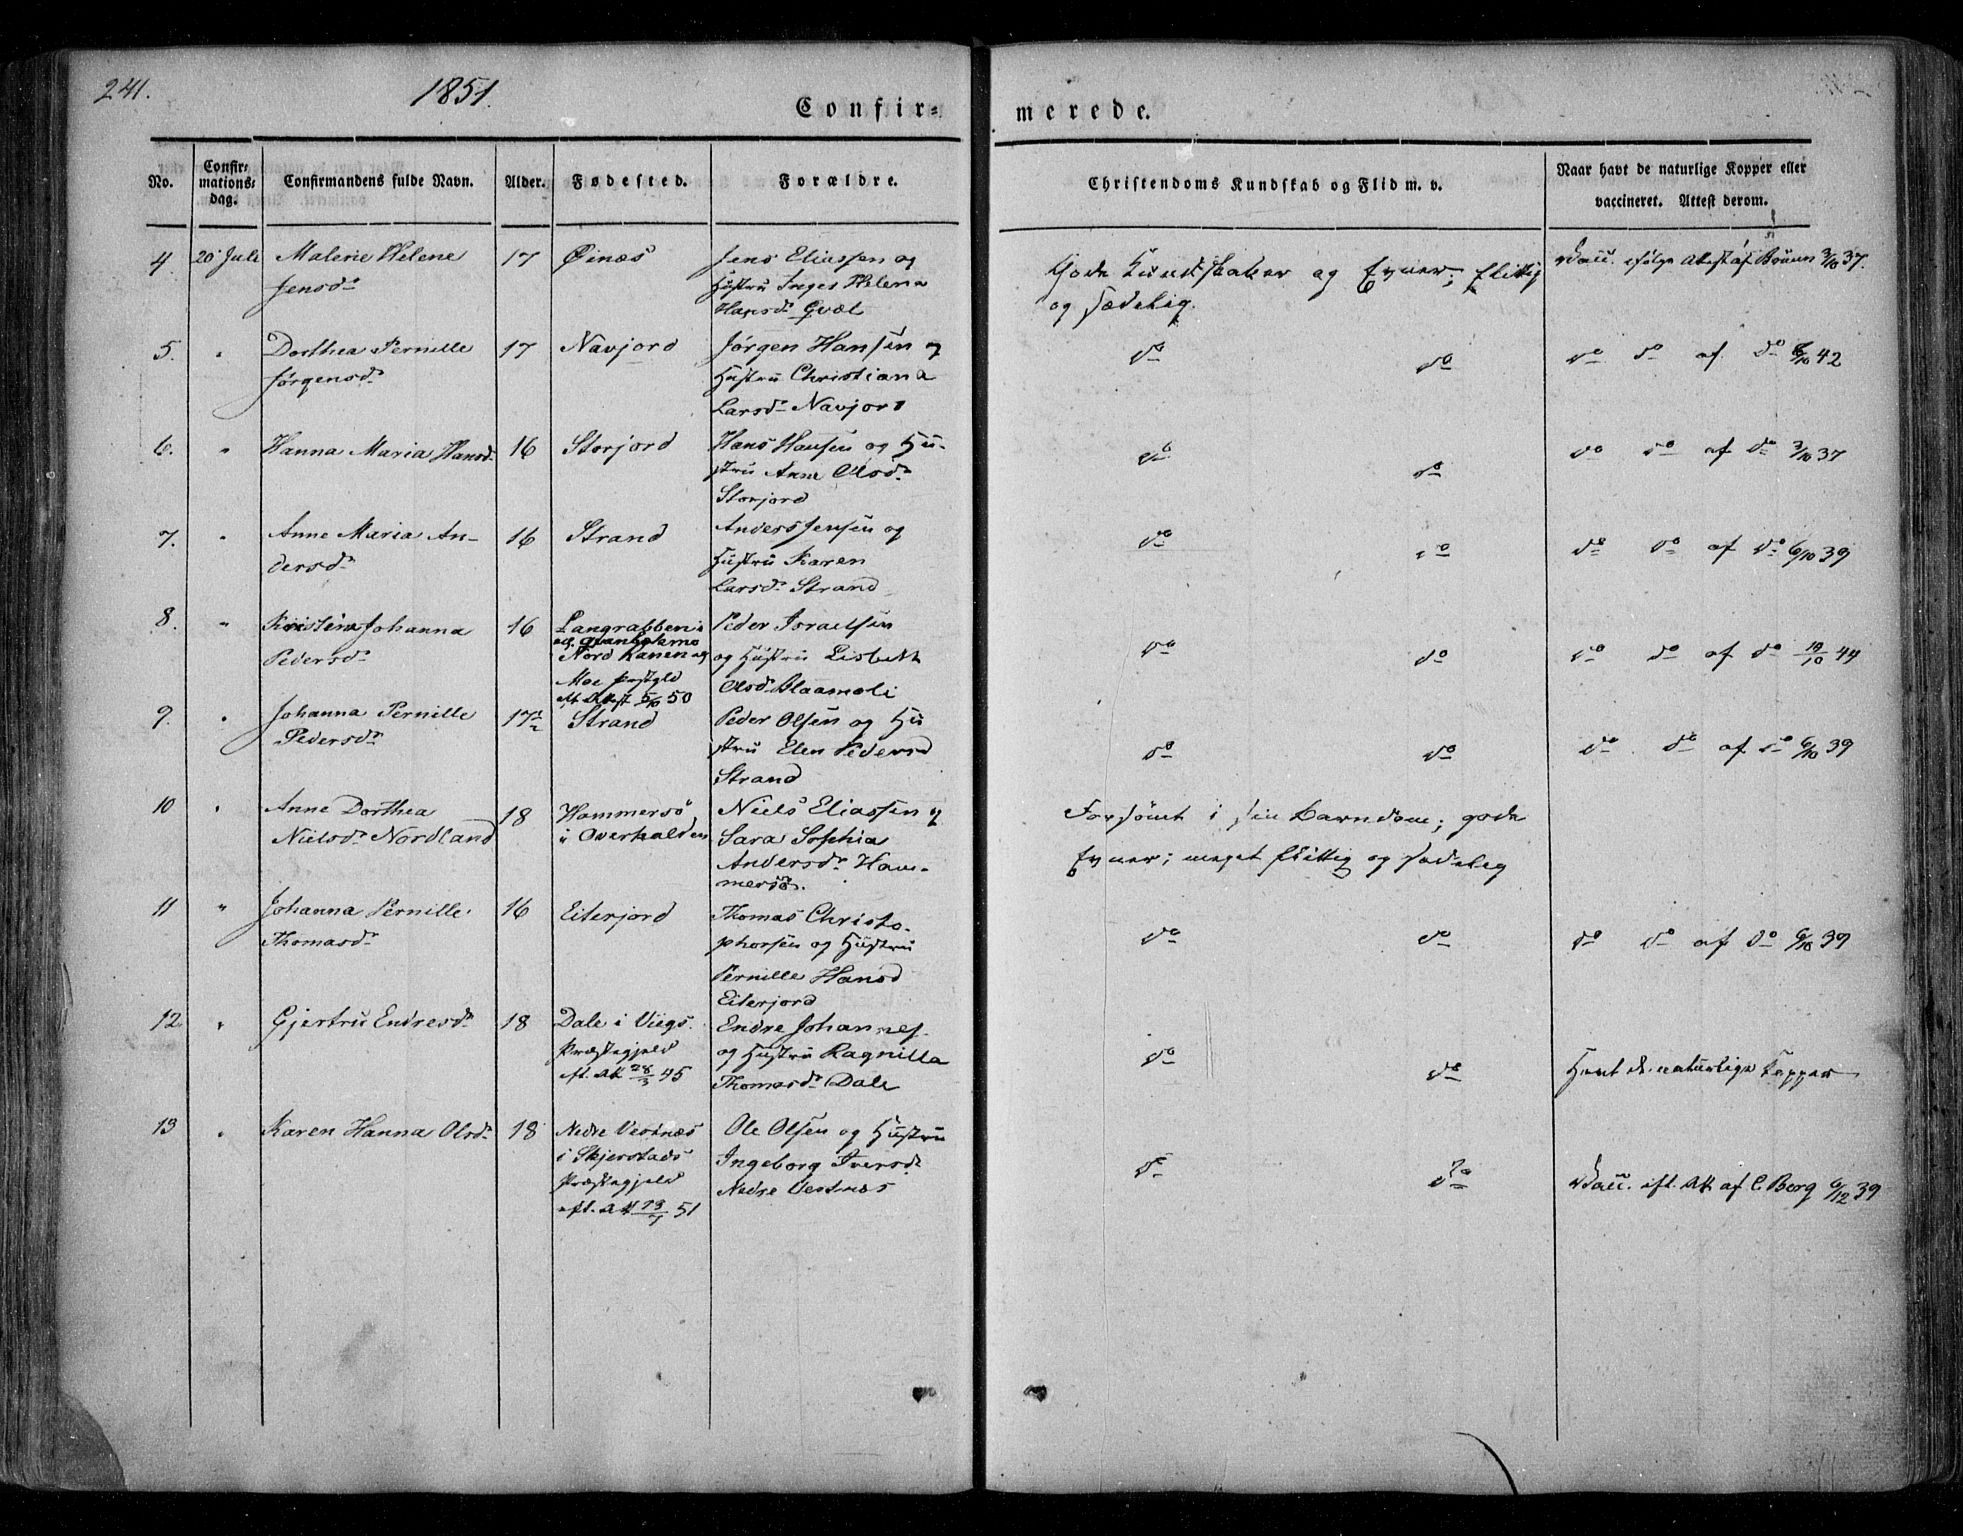 241.
1851.
Confir-
merede.
No.
Confir-
mations-
dag.
Confirmandens fulde Navn.
Alder.
Fødested.
Forældre.
Christendoms Kundskab og Flid m. v.
Naar havt de naturlige Kopper eller
vaccineret. Attest derom.
4. 20 Juli Malene Helene 17 Øinæs Jens Eliassen og
Jensdr Hustru Inges Helena
Hansdr Qvæl
Gode Kundskaber og Evner; flittig
og sædelig.
Vacc. ifølge Attest af Bruun 3/10 37.
5. " Dorthea Pernille 17 Navjord Jørgen Hansen og
Jørgensdr Hustru Christiana
Larsdr Navjord
do do do do af do 6/10 42
6. " Hanna Maria Hansdr 16 Storjord Hans Hansen og Hu-
stru Anne Olsdr
Storjord
do do do do af do 3/10 37
7. " Anne Maria An- 16 Strand Anders Jensen og
dersdr Hustru Karen
Larsdr Strand
do do do do af do 6/10 39
8. " Kristina Johanna 16 Langrabben i Peder Israelsen
Pedersdr
Nord Ranen og
og Hustru Lisbeth
Moe Præstgld
Olsdr Blaamoli
eft Attest 5/10 50
do do do do af do 10/10 44
9. " Johanna Pernille 17½ Strand Peder Olsen og Hu
Pedersdr stru Elen Pedersd
Strand
do do do do af do 6/10 39
10 " Anne Dorthea 18 Hammersö Niels Eliassen og
Nielsdr Nordland i Overhalden Sara Sophia
Andersdr Ham-
mersö.
Forsömt i sin Barndom; gode
Evner; meget flittig og sædelig
11 " Johanna Pernille 16 Eiterjord Thomas Christo-
Thomasdr phersen og Hustru
Pernille Hansd
Eiterjord
do do do do af do 6/10 39
12 " Gjertru Endresdr 18 Dale i Viigs Endre Johannes.
Præstegjeld og Hustru Ragnilla
eft. Att 28/3 45 Thomasdr Dale
do do Havt de naturlige Kopper
13 " Karen Hanna Olsdr 18 Nedre Vestnæs Ole Olsen og Hustru
i Skjerstads Ingeborg Iversdr
Præstegjeld Nedre Vestnæs
eft. Att 13/7 51
do do Vacc. eft. Att af C Berg 6/12 39